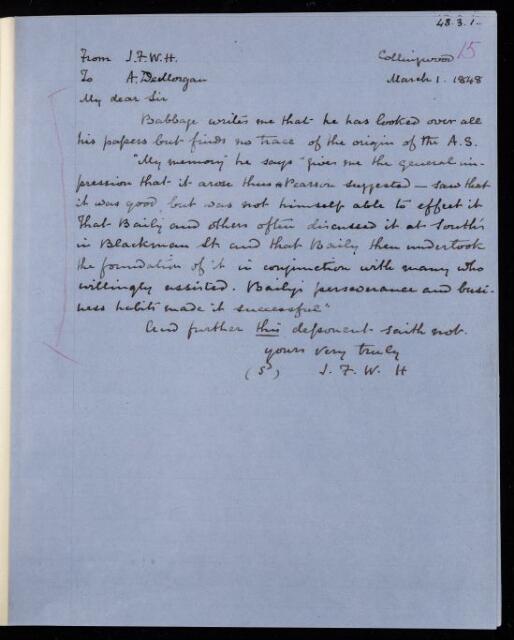 48.3.1.
15
From J.F.W.H. Collingwood
To A. DeMorgan March 1. 1848
My dear Sir
Babbage writes me that he has looked over all
his papers but finds no trace of the origin of the A.S.
"My memory" he says "gives me the general im-
pression that it arose thus Pearson suggested — saw that
it was good, but was not himself able to effect it
That Baily and others often discussed it at South's
in Blackman St. and that Baily then undertook
the foundation of it in conjunction with many who
willingly assisted. Baily's perseverance and busi-
ness habits made it successful"
And further this deponent saith not.
yours very truly
(S⁠d) J. F. W. H